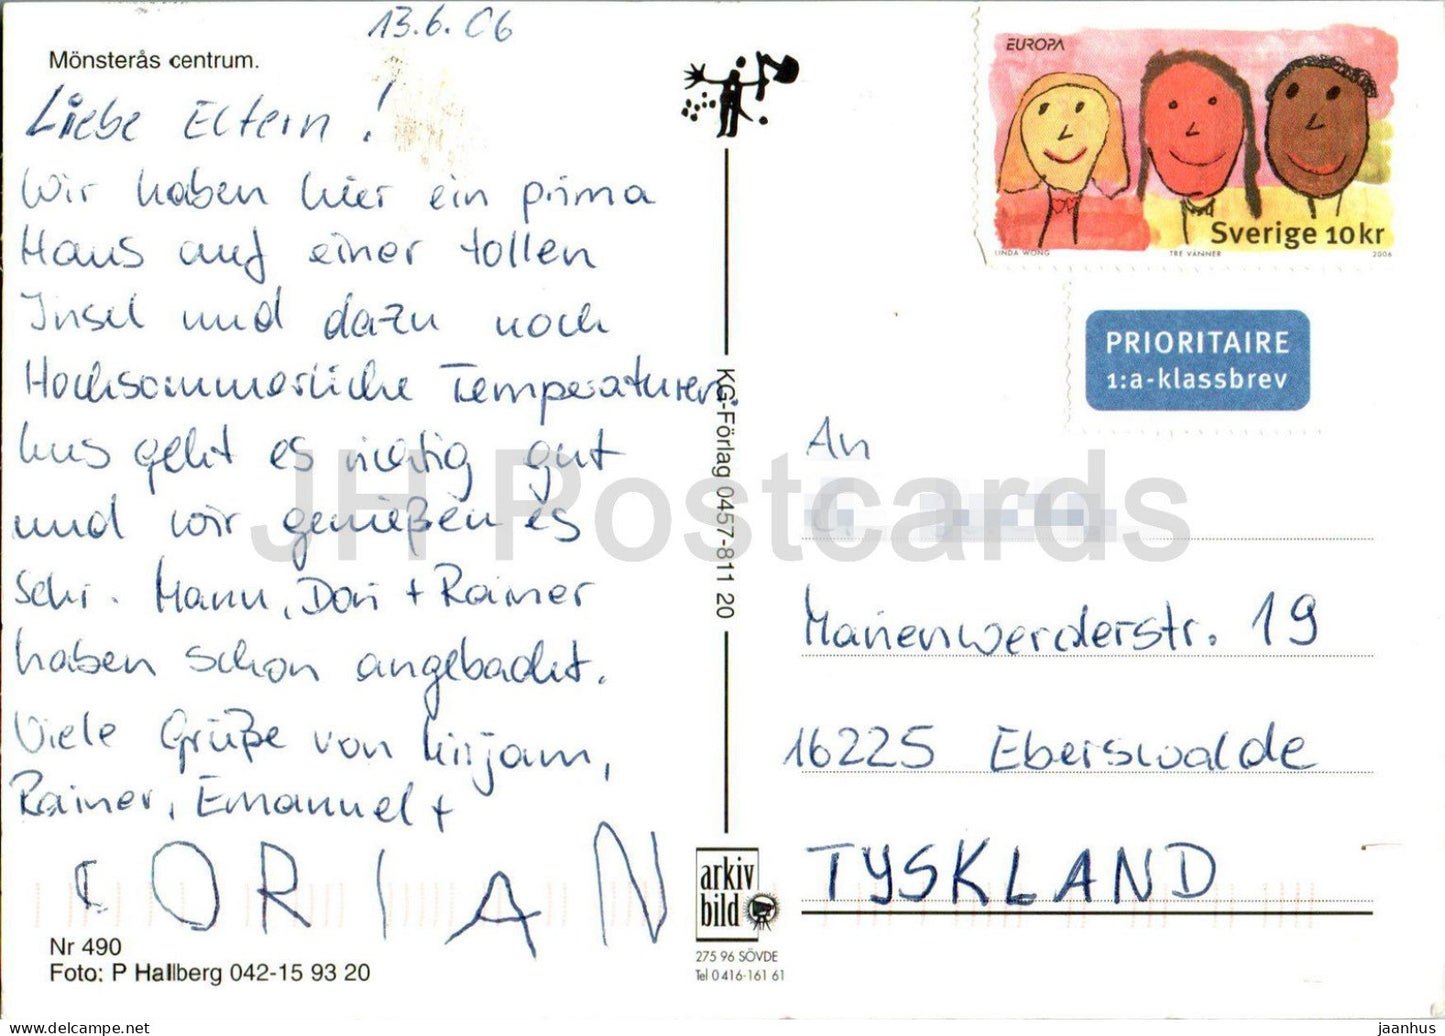 13.6.06
Mönsterås centrum.
Liebe Eltern!
Wir haben hier ein prima
Haus auf einer tollen
Insel und dazu noch
Hochsommerliche Temperaturen.
uns geht es richtig gut
und wir genießen es
sehr. Mann, Dori + Rainer
haben schon angebadet.
Viele Grüße von Mirjam,
Rainer, Emanuel +
ORIAN
Nr 490
Foto: P Hallberg 042-15 93 20
KG-Förlag 0457-811 20
arkiv
bild
275 96 SÖVDE
Tel 0416-161 61
EUROPA
Sverige 10kr
LINDA WONG TRE VÄNNER 2006
PRIORITAIRE
1:a-klassbrev
An
Marienwerderstr. 19
16225 Eberswalde
TYSKLAND
JH Postcards
jaanhus